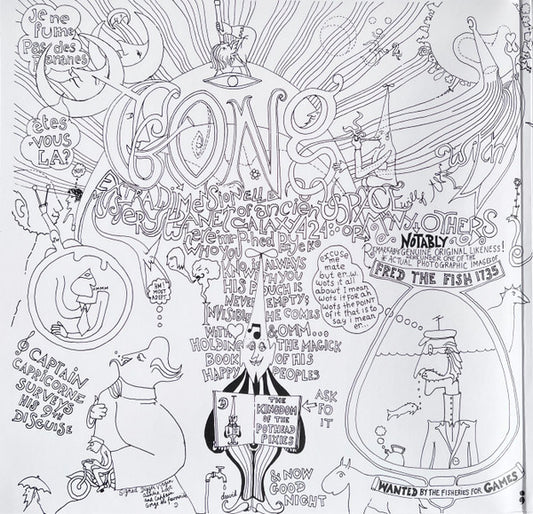 Je ne
fume
Pas des
Bananes
êtes
-vous
LA?
NON!
GONG
EXTRADIMENSIONELLE
MYSERY PLANET of ancient
GALAXY A424:op:
wich
MANY OTHERS
NOTABLY
REMARKABLE GENUINE ORIGINAL LIKENESS!
ACTUAL PHOTOGRAPHIC IMAGE OF
FRED THE FISH 1735
WHO YOU
KNOW ALWAYS
THAT YOU
HIS POUCH IS
NEVER EMPTY;
INVISIBLE HE COMES
WITH & OMM...
HOLDING THE MAGICK
BOOK OF HIS
HAPPY PEOPLES
EXCUSE
me
mate
but er.w.
wots it all
about I mean
wots it FOR ah
wots the POINT
of it that is to
say i mean
er...
AM I
MOST
ADEPT?
CAPTAIN
CAPRICORNE
SURVEYS
HIS 9th
DISGUISE
THE
KINGDOM
OF THE
POTHEAD
PIXIES
ASK
FO
IT
& NOW
GOOD
NIGHT
david
WANTED BY THE FISHERIES FOR GAMES